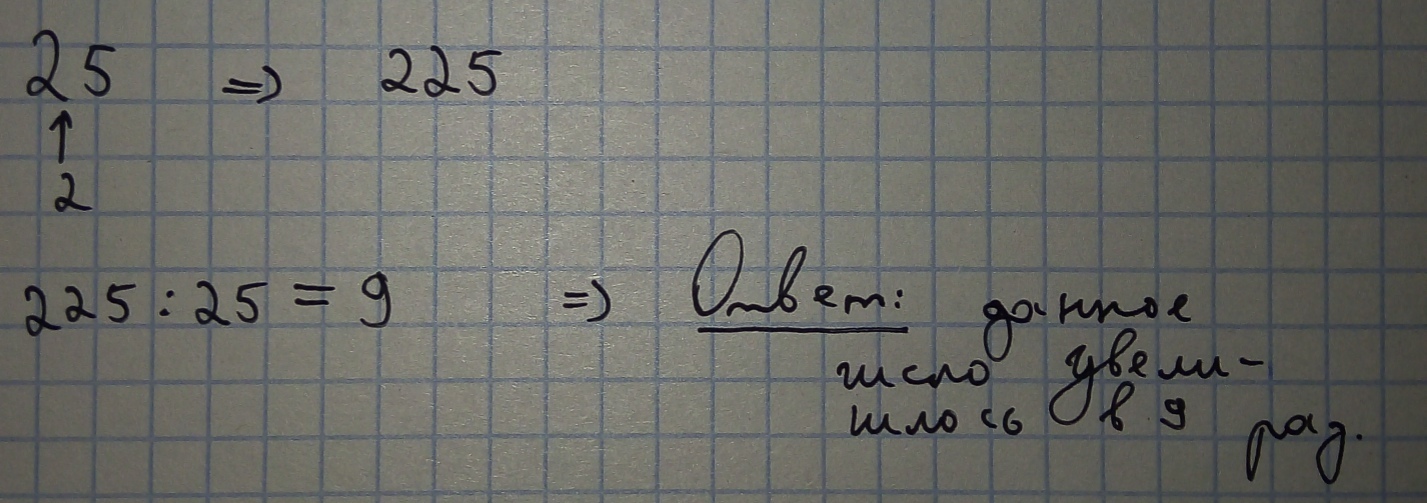 25 => 225
↑
2
225 : 25 = 9 => Ответ: данное
число увели-
чилось в 9 раз.